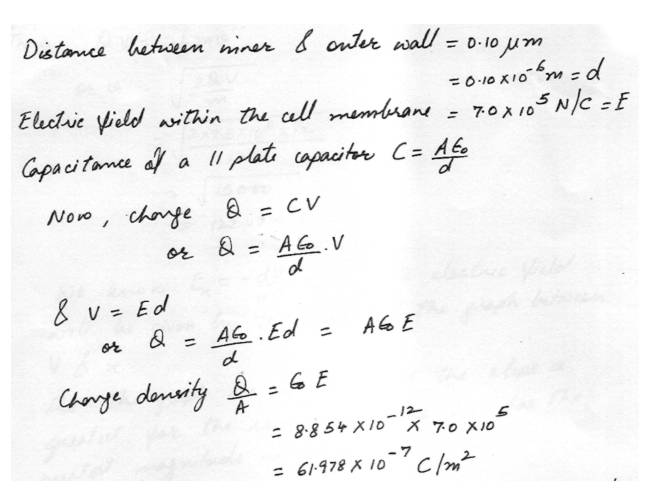 Distance between inner & outer wall = 0.10 μm
= 0.10 x 10⁻⁶ m = d
Electric field within the cell membrane = 7.0 x 10⁵ N/C = E
Capacitance of a || plate capacitor C = A ϵ₀ / d
Now, charge Q = CV
or Q = A ϵ₀ / d . V
& V = Ed
or Q = A ϵ₀ / d . Ed = A ϵ₀ E
Charge density Q / A = ϵ₀ E
= 8.854 x 10⁻¹² x 7.0 x 10⁵
= 61.978 x 10⁻⁷ C/m²